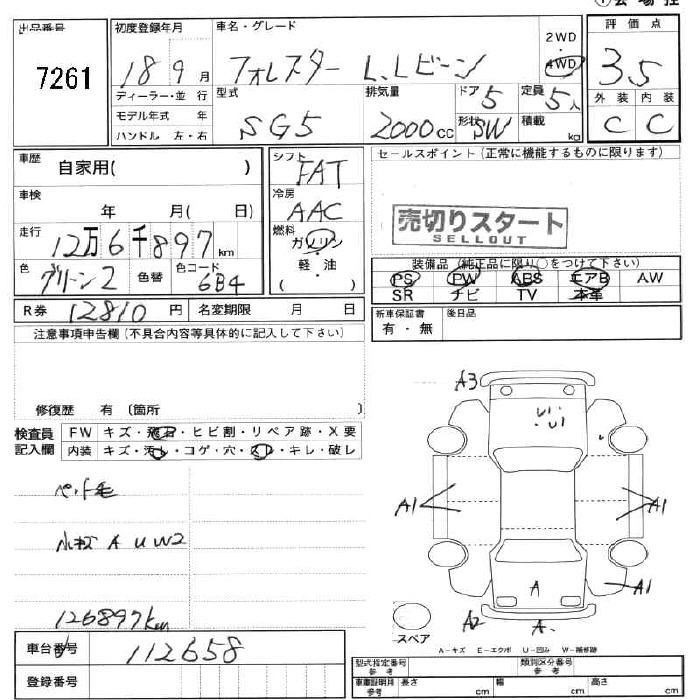 出品番号
7261
初度登録年月
18 9 月
ディーラー・並 行
モデル年式 年
ハンドル 左・右
車名・グレード
フォレスター L.Lビーン
2WD
・
4WD
型式
SG5
排気量
2000cc
ドア
5
形状
SW
定員
5人
積載
kg
評価点
3.5
外装 内装
C C
車歴
自家用( )
車検
年 月( 日)
走行
12万6千897km
色
グリーン2
色替
色コード
6B4
シフト
FAT
冷房
AAC
燃料
ガソリン
軽・油
( )
セールスポイント(正常に機能するものに限ります)
売切りスタート
SELLOUT
装備品(純正品に限り〇をつけて下さい)
PS PW ABS エアB AW
SR ナビ TV 本革
R券 12810 円 名変期限 月 日
新車保証書
有・無
後日品
注意事項申告欄(不具合内容等具体的に記入して下さい)
修復歴 有(箇所 )
検査員
記入欄
FW キズ・飛石・ヒビ割・リペア跡・X要
内装 キズ・汚レ・コゲ・穴・スレ・キレ・破レ
ペット毛
A U W2
126897km
A3
U1
U1
A1
A1
A1
A
A2
A
スペア
A-キズ E-エクボ U-凹み W-補修跡
車台番号 112658
登録番号
型式指定番号
参考
類別区分番号
参考
車庫証明用
参考
長さ cm 幅 cm 高さ cm